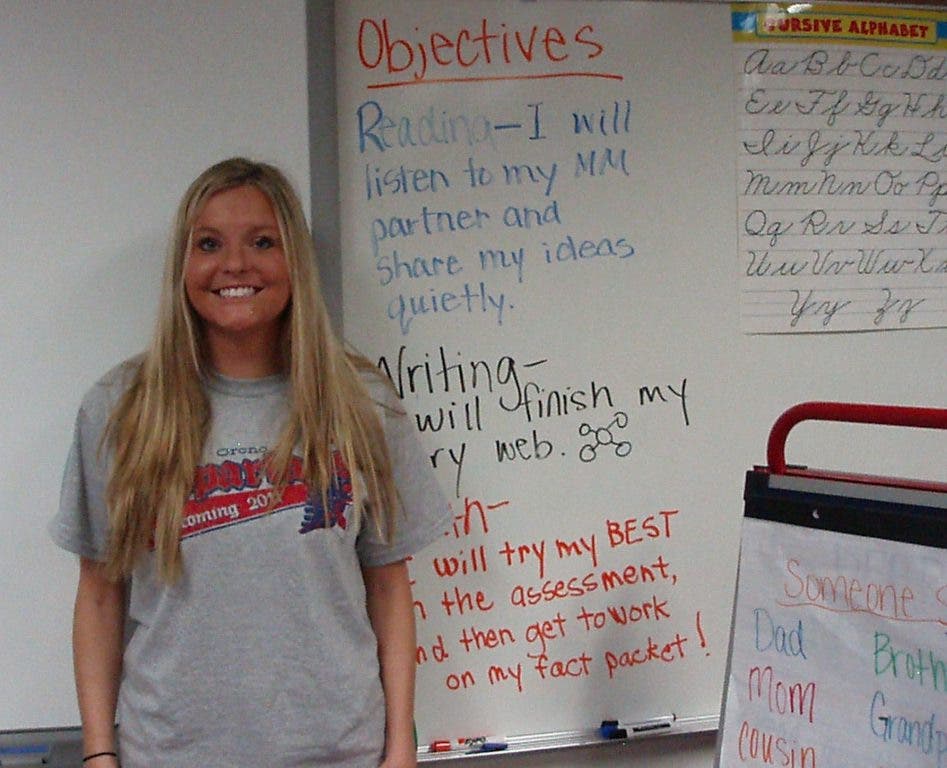 Objectives
Reading-I will
listen to my MM
partner and
share my ideas
quietly.
Writing-
will finish my
ry web.
in-
will try my BEST
the assessment,
nd then get to work
on my fact packet!
CURSIVE ALPHABET
Aa Bb Cc Dd
Ee Ff Gg Hh
Ii Jj Kk Ll
Mm Nn Oo Pp
Qq Rr Ss T
Uu Vv Ww X
Yy Zz
Orono
par
coming 201
Someone
Dad Broth
Mom Grand
cousin
EXPO